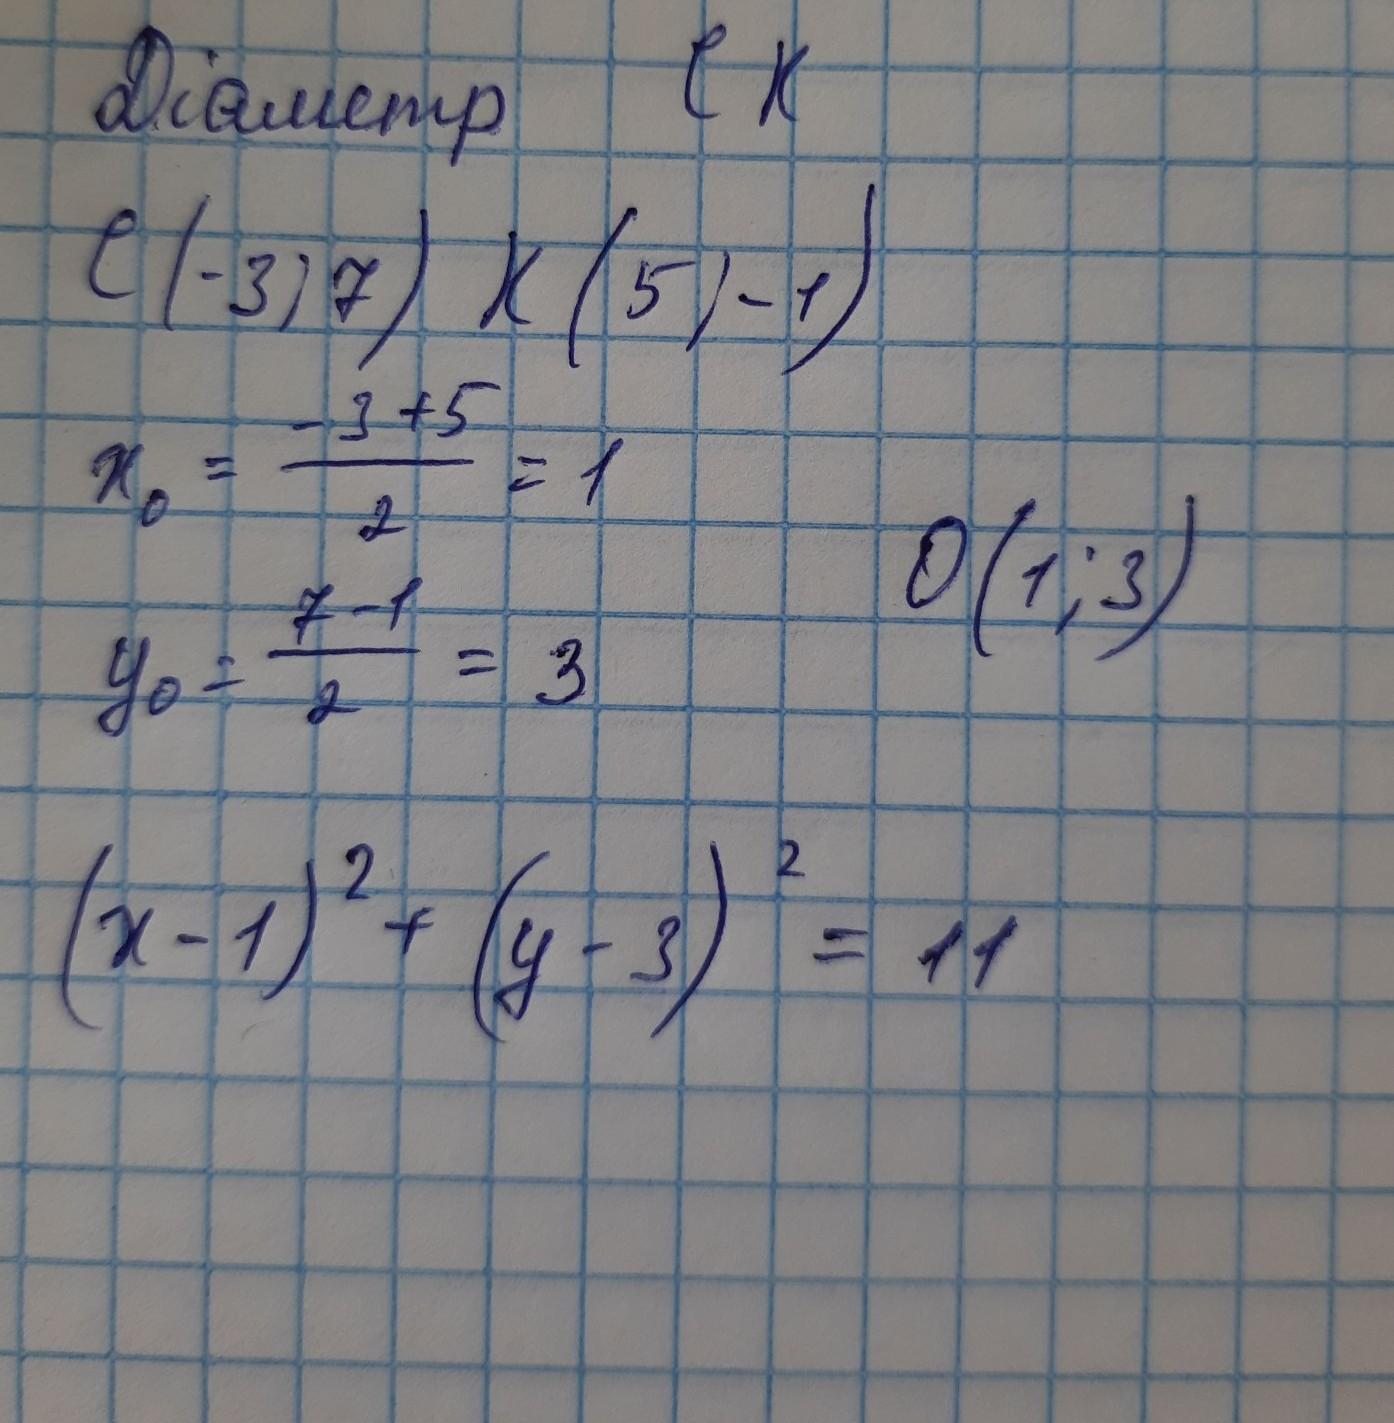 Діаметр СК
С(-3; 7) К(5; -1)
x₀ = (-3+5)/2 = 1
O(1; 3)
y₀ = (7-1)/2 = 3
(x-1)² + (y-3)² = 11